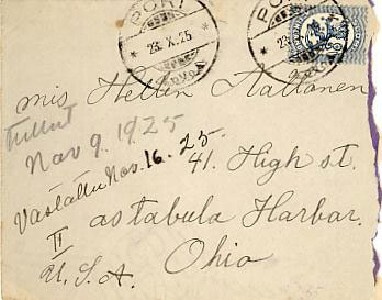 PORI
23.X.25
PO
23
Miss Hellin Aaltonen
Tullut
Nov 9. 1925
Vastattu Nov. 16. 25.
41. High st.
II
astabula Harbor.
Ohio
U.S.A.